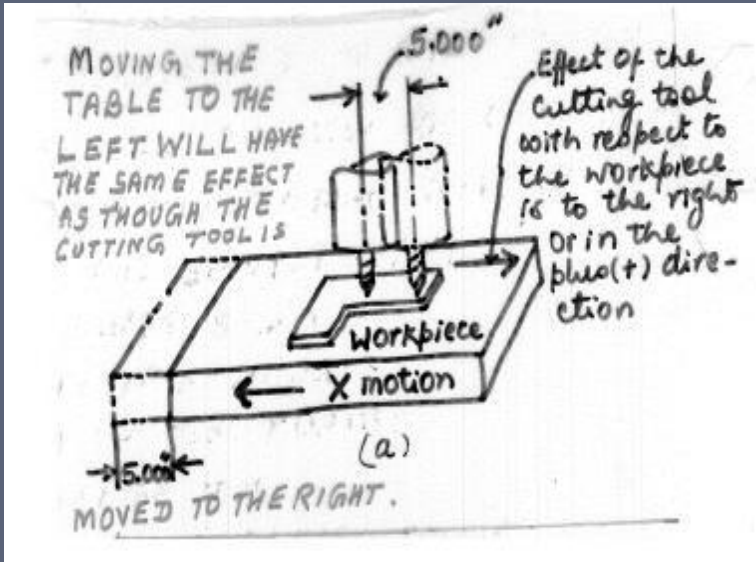 MOVING THE
TABLE TO THE
LEFT WILL HAVE
THE SAME EFFECT
AS THOUGH THE
CUTTING TOOL IS
5.000"
Effect of the
cutting tool
with respect to
the workpiece
is to the right
or in the
plus(+) dire-
ction
Workpiece
X motion
(a)
5.000"
MOVED TO THE RIGHT.